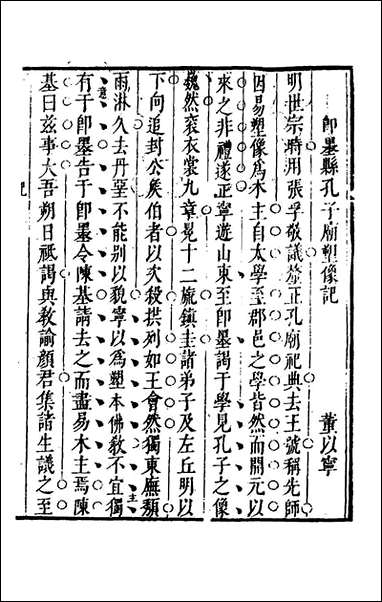 即墨縣孔子廟塑像記　董以寧
明世宗時用張孚敬議釐正孔廟祀典去王號稱先師
因易塑像爲木主自太學至郡邑之學皆然而開元以
來之非禮遂正寧遊山東至即墨謁于學見孔子之像
巍然袞衣裳九章冕十二旒鎮圭諸弟子及左丘明以
下向追封公矦伯者以次殺拱列如王會然獨東廡頽
雨淋久去丹堊不能別以貌寧以爲塑本佛教不宜獨
有于即墨告于即墨令陳基請去之而畫易木主焉陳
基曰兹事大吾朔日祗謁與教諭顏君集諸生議之至
意
主
記